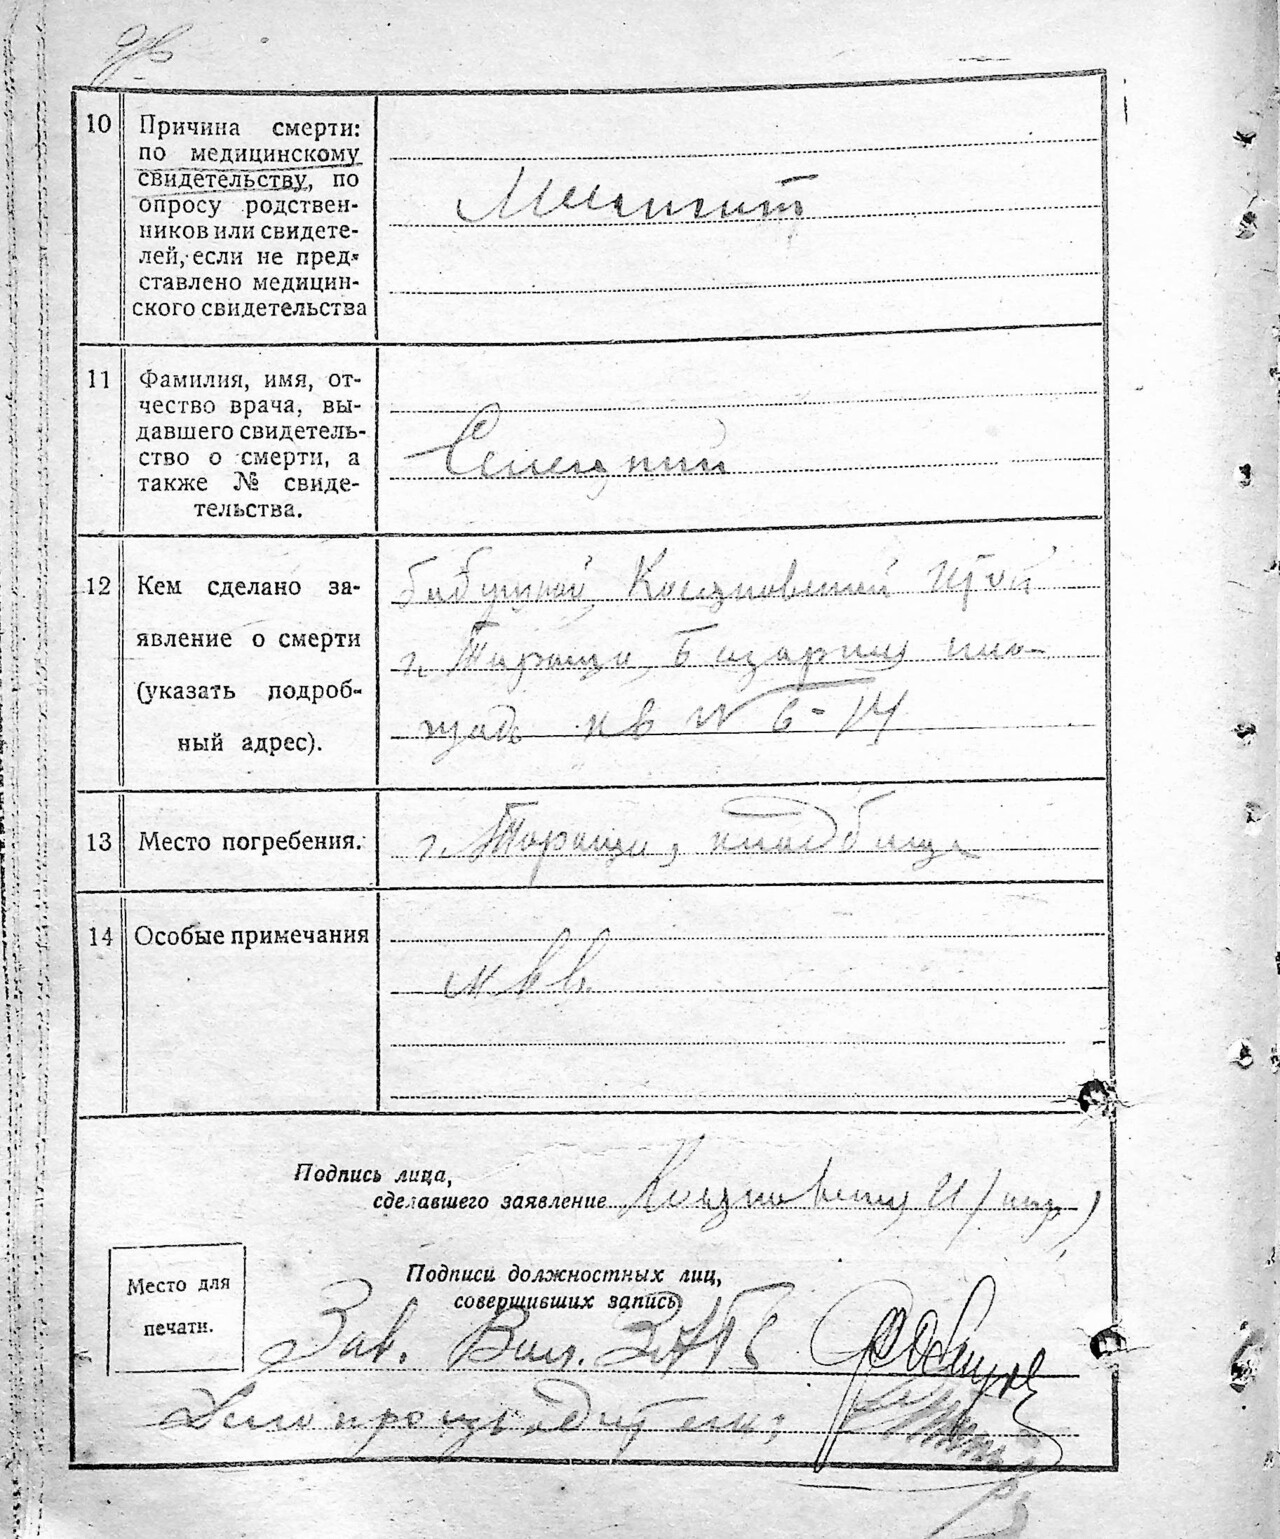 10
Причина смерти:
по медицинскому
свидетельству, по
опросу родствен-
ников или свидете-
лей, если не пред-
ставлено медицин-
ского свидетельства
Менингит
11
Фамилия, имя, от-
чество врача, вы-
давшего свидетель-
ство о смерти, а
также № свиде-
тельства.
12
Кем сделано за-
явление о смерти
(указать подроб-
ный адрес).
бабушкой
г. Тараща, Базарная пло-
щадь кв № 6-14
13
Место погребения.
г. Тараща, кладбище
14
Особые примечания
Подпись лица,
сделавшего заявление
Место для
печати.
Подписи должностных лиц,
совершивших запись
Зав.
Делопроизводитель